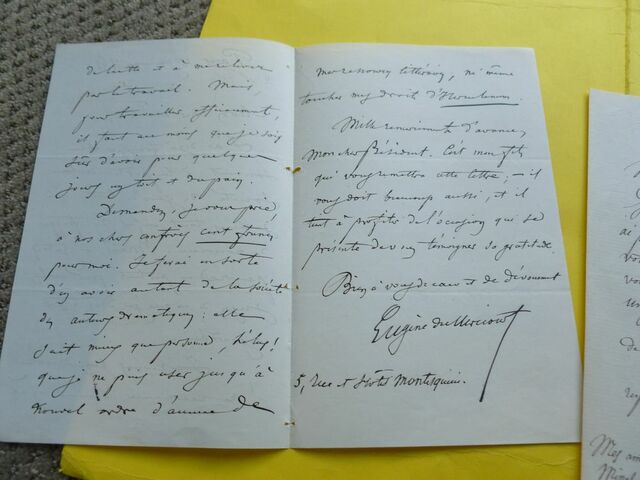 de lutte et à me relever
par le travail. Mais,
pour travailler efficacement,
il faut au moins que je sois
sûr d'avoir pour quelques
jours un toit et du pain.
Demandez, je vous prie,
à nos chers confrères cent francs
pour moi. Je ferai en sorte
d'en avoir autant de la société
des auteurs dramatiques : elle
sait mieux que personne, hélas!
que je ne puis user jusqu'à
nouvel ordre d'aucune de
mes ressources littéraires, ni même
toucher mes droits d'
Mille remerciements d'avance,
Mon cher Président. C'est mon fils
qui vous remettra cette lettre; – il
vous doit beaucoup aussi, et il
tient à profiter de l'occasion qui se
présente de vous témoigner sa gratitude.
Bien à vous de cœur et de dévouement
Eugène de Mirecourt
5, rue et Hôtel Montesquieu.
Mes am